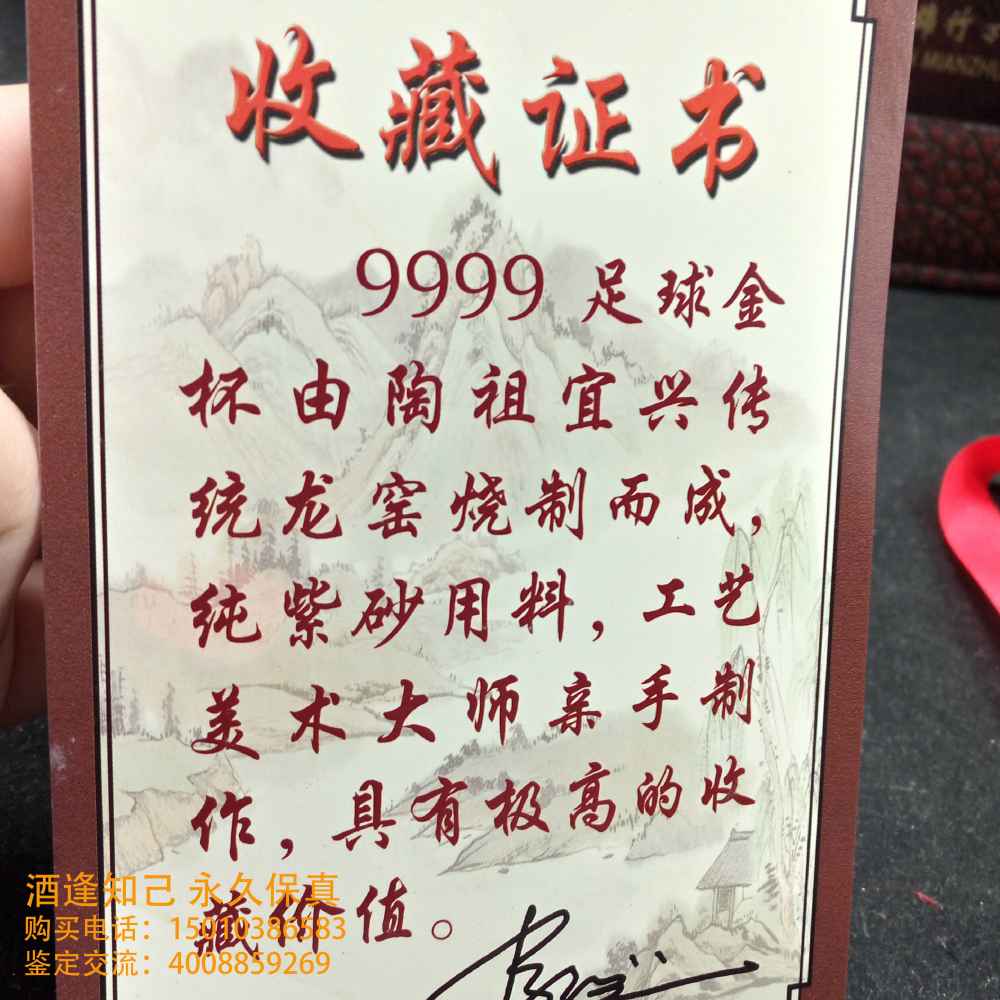 收藏证书
9999 足球金
杯由陶祖宜兴传
统龙窑烧制而成,
纯紫砂用料,工艺
美术大师亲手制
作,具有极高的收
藏价值。
酒逢知己 永久保真
购买电话：15010386583
鉴定交流：4008859269